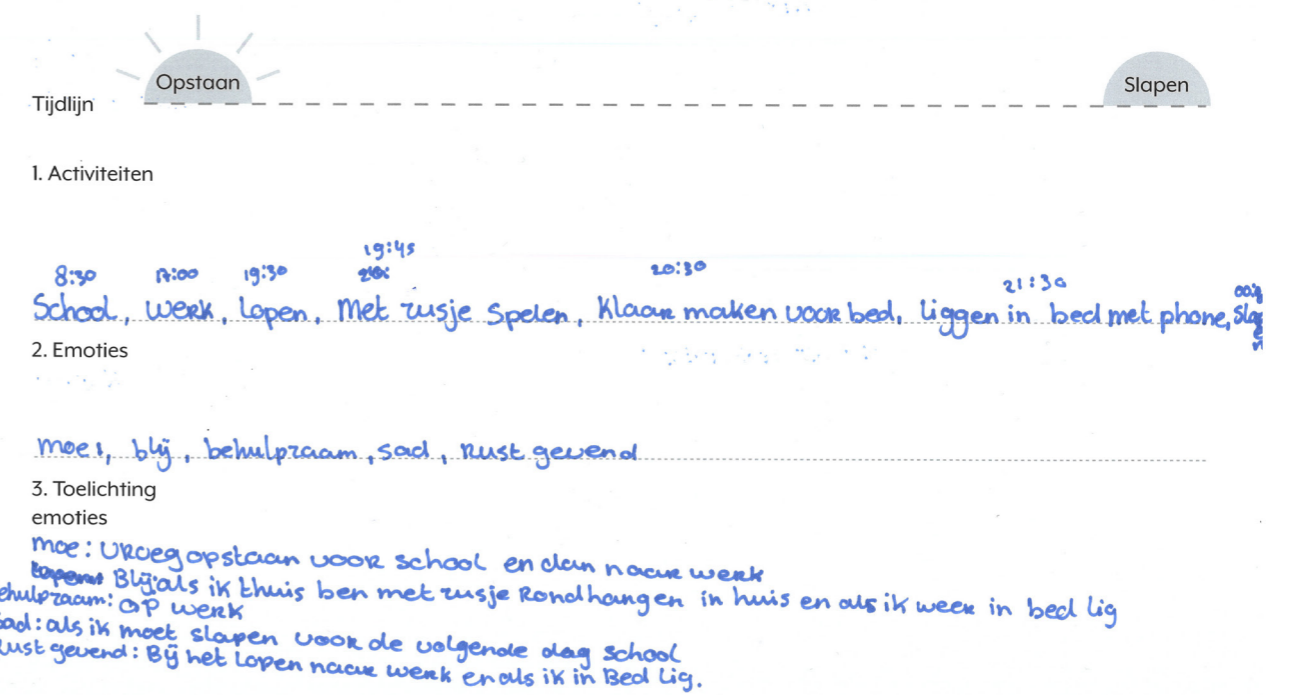 Opstaan
Slapen
Tijdlijn
1. Activiteiten
19:45
8:30 17:00 19:30 20:30 21:30
School, werk, lopen, Met zusje spelen, Klaar maken voor bed, liggen in bed met phone,
2. Emoties
moe, blij, behulpzaam, sad, Rust gevend
3. Toelichting
emoties
moe: vroeg opstaan voor school en dan naar werk
Blij: als ik thuis ben met zusje Rondhangen in huis en als ik weer in bed lig
ehulpzaam: op werk
sad: als ik moet slapen voor de volgende dag school
Rust gevend: Bij het lopen naar werk en als ik in Bed lig.